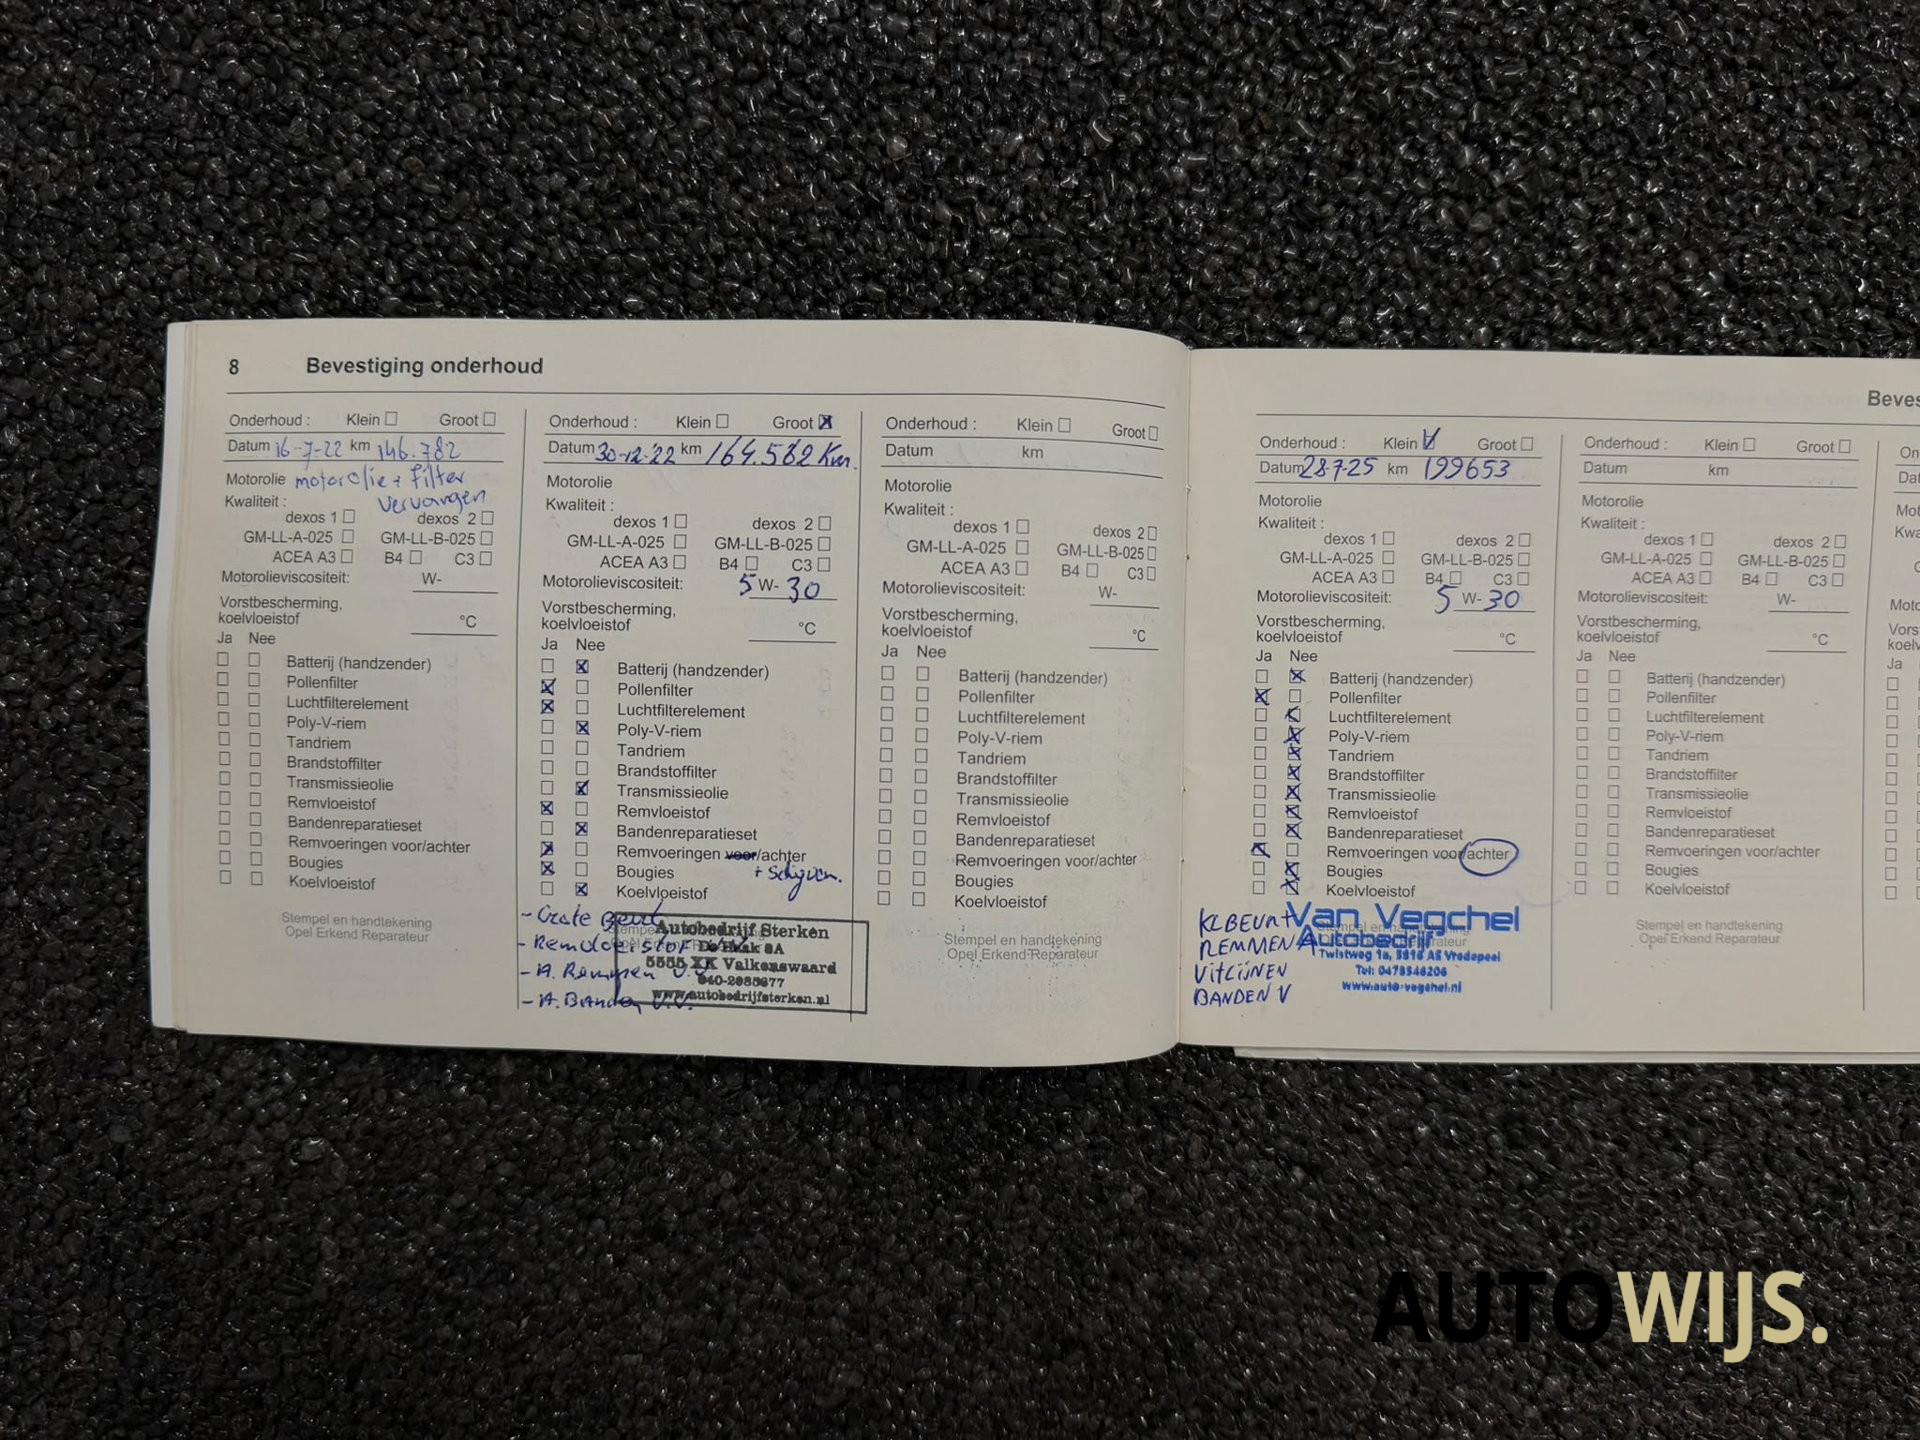 8 Bevestiging onderhoud
Onderhoud : Klein Groot
Datum 16-7-22 km 146.782
Motorolie motorolie + filter
vervangen
Kwaliteit :
dexos 1 dexos 2
GM-LL-A-025 GM-LL-B-025
ACEA A3 B4 C3
Motorolieviscositeit: W-
Vorstbescherming,
koelvloeistof °C
Ja Nee
Batterij (handzender)
Pollenfilter
Luchtfilterelement
Poly-V-riem
Tandriem
Brandstoffilter
Transmissieolie
Remvloeistof
Bandenreparatieset
Remvoeringen voor/achter
Bougies
Koelvloeistof
Stempel en handtekening
Opel Erkend Reparateur
Onderhoud : Klein Groot
Datum 30-12-'22 km 164.582 Km.
Motorolie
Kwaliteit :
dexos 1 dexos 2
GM-LL-A-025 GM-LL-B-025
ACEA A3 B4 C3
Motorolieviscositeit: 5 W- 30
Vorstbescherming,
koelvloeistof °C
Ja Nee
Batterij (handzender)
Pollenfilter
Luchtfilterelement
Poly-V-riem
Tandriem
Brandstoffilter
Transmissieolie
Remvloeistof
Bandenreparatieset
Remvoeringen voor/achter
+ schijven.
Bougies
Koelvloeistof
- Grote Beurt
- Remvloeistof
- A. Remmen V.V.
- A. Banden V.V.
Autobedrijf Sterken
De Haak 8A
5555 XK Valkenswaard
www.autobedrijfsterken.nl
Onderhoud : Klein Groot
Datum km
Motorolie
Kwaliteit :
dexos 1 dexos 2
GM-LL-A-025 GM-LL-B-025
ACEA A3 B4 C3
Motorolieviscositeit: W-
Vorstbescherming,
koelvloeistof °C
Ja Nee
Batterij (handzender)
Pollenfilter
Luchtfilterelement
Poly-V-riem
Tandriem
Brandstoffilter
Transmissieolie
Remvloeistof
Bandenreparatieset
Remvoeringen voor/achter
Bougies
Koelvloeistof
Stempel en handtekening
Opel Erkend-Reparateur
Beves
Onderhoud : Klein Groot
Datum 28-7-25 km 199653
Motorolie
Kwaliteit :
dexos 1 dexos 2
GM-LL-A-025 GM-LL-B-025
ACEA A3 B4 C3
Motorolieviscositeit: 5 W- 30
Vorstbescherming,
koelvloeistof °C
Ja Nee
Batterij (handzender)
Pollenfilter
Luchtfilterelement
Poly-V-riem
Tandriem
Brandstoffilter
Transmissieolie
Remvloeistof
Bandenreparatieset
Remvoeringen voor/achter
Bougies
Koelvloeistof
KLBEURT
REMMEN A
UITLIJNEN
BANDEN V
Van Vegchel
Autobedrijf
Twistweg 1a, 5816 AS Vredepeel
Tel: 0478546206
www.auto-vegchel.nl
Onderhoud : Klein Groot
Datum km
Motorolie
Kwaliteit :
dexos 1 dexos 2
GM-LL-A-025 GM-LL-B-025
ACEA A3 B4 C3
Motorolieviscositeit: W-
Vorstbescherming,
koelvloeistof °C
Ja Nee
Batterij (handzender)
Pollenfilter
Luchtfilterelement
Poly-V-riem
Tandriem
Brandstoffilter
Transmissieolie
Remvloeistof
Bandenreparatieset
Remvoeringen voor/achter
Bougies
Koelvloeistof
Stempel en handtekening
Opel Erkend Reparateur
AUTOWIJS.